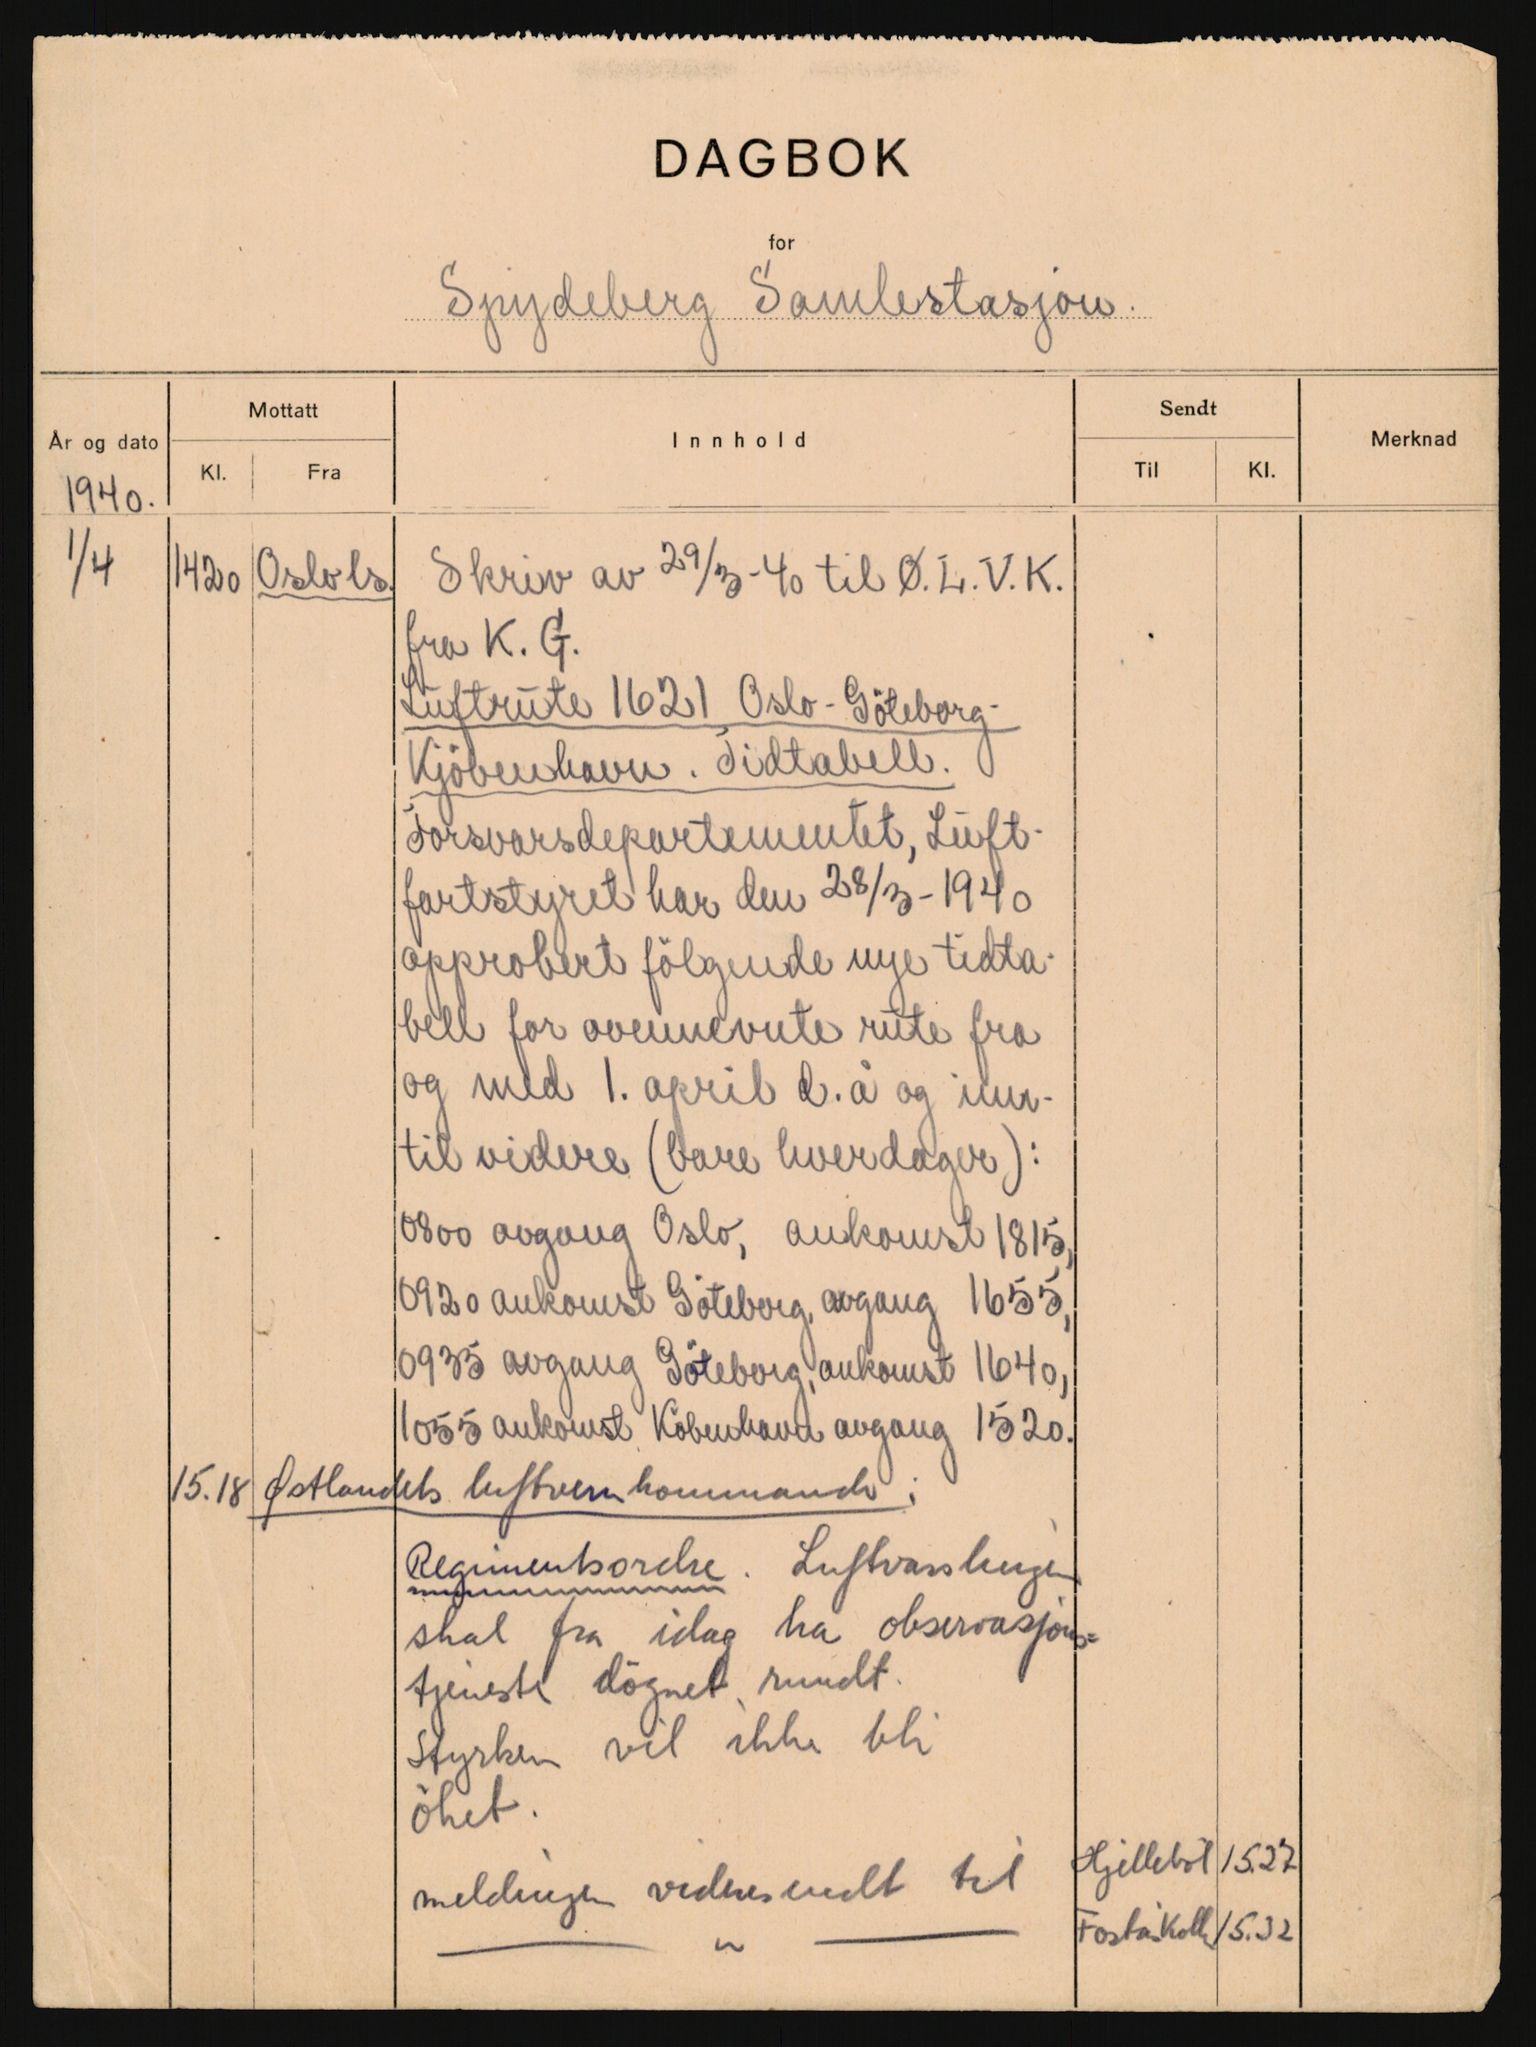 DAGBOK
for
Spydeberg Samlestasjon.
År og dato
Mottatt
Kl.
Fra
Innhold
Sendt
Til
Kl.
Merknad
1940.
1/4 1420 Oslo ls. Skriv av 29/3-40 til Ø.L.V.K.
fra K.G.
Luftrute 1621 Oslo-Göteborg-
Kjöbenhavn. Tidtabell.
Forsvarsdepartementet, Luft-
fartstyret har den 28/3-1940
approbert fölgende nye tidta-
bell for ovennevnte rute fra
og med 1. april d.å og inn-
til videre (bare hverdager):
0800 avgang Oslo, ankomst 1815,
0920 ankomst Göteborg, avgang 1655,
0935 avgang Göteborg, ankomst 1640,
1055 ankomst Köbenhavn avgang 1520.
15.18 Østlandets luftvernkommando:
Regimentsordre. Luftvasslingen
skal fra idag ha observasjons=
tjeneste dögnet rundt.
Styrken vil ikke bli
öket.
meldingen videresendt til Hjelleböl 15.27
— " — 15.32